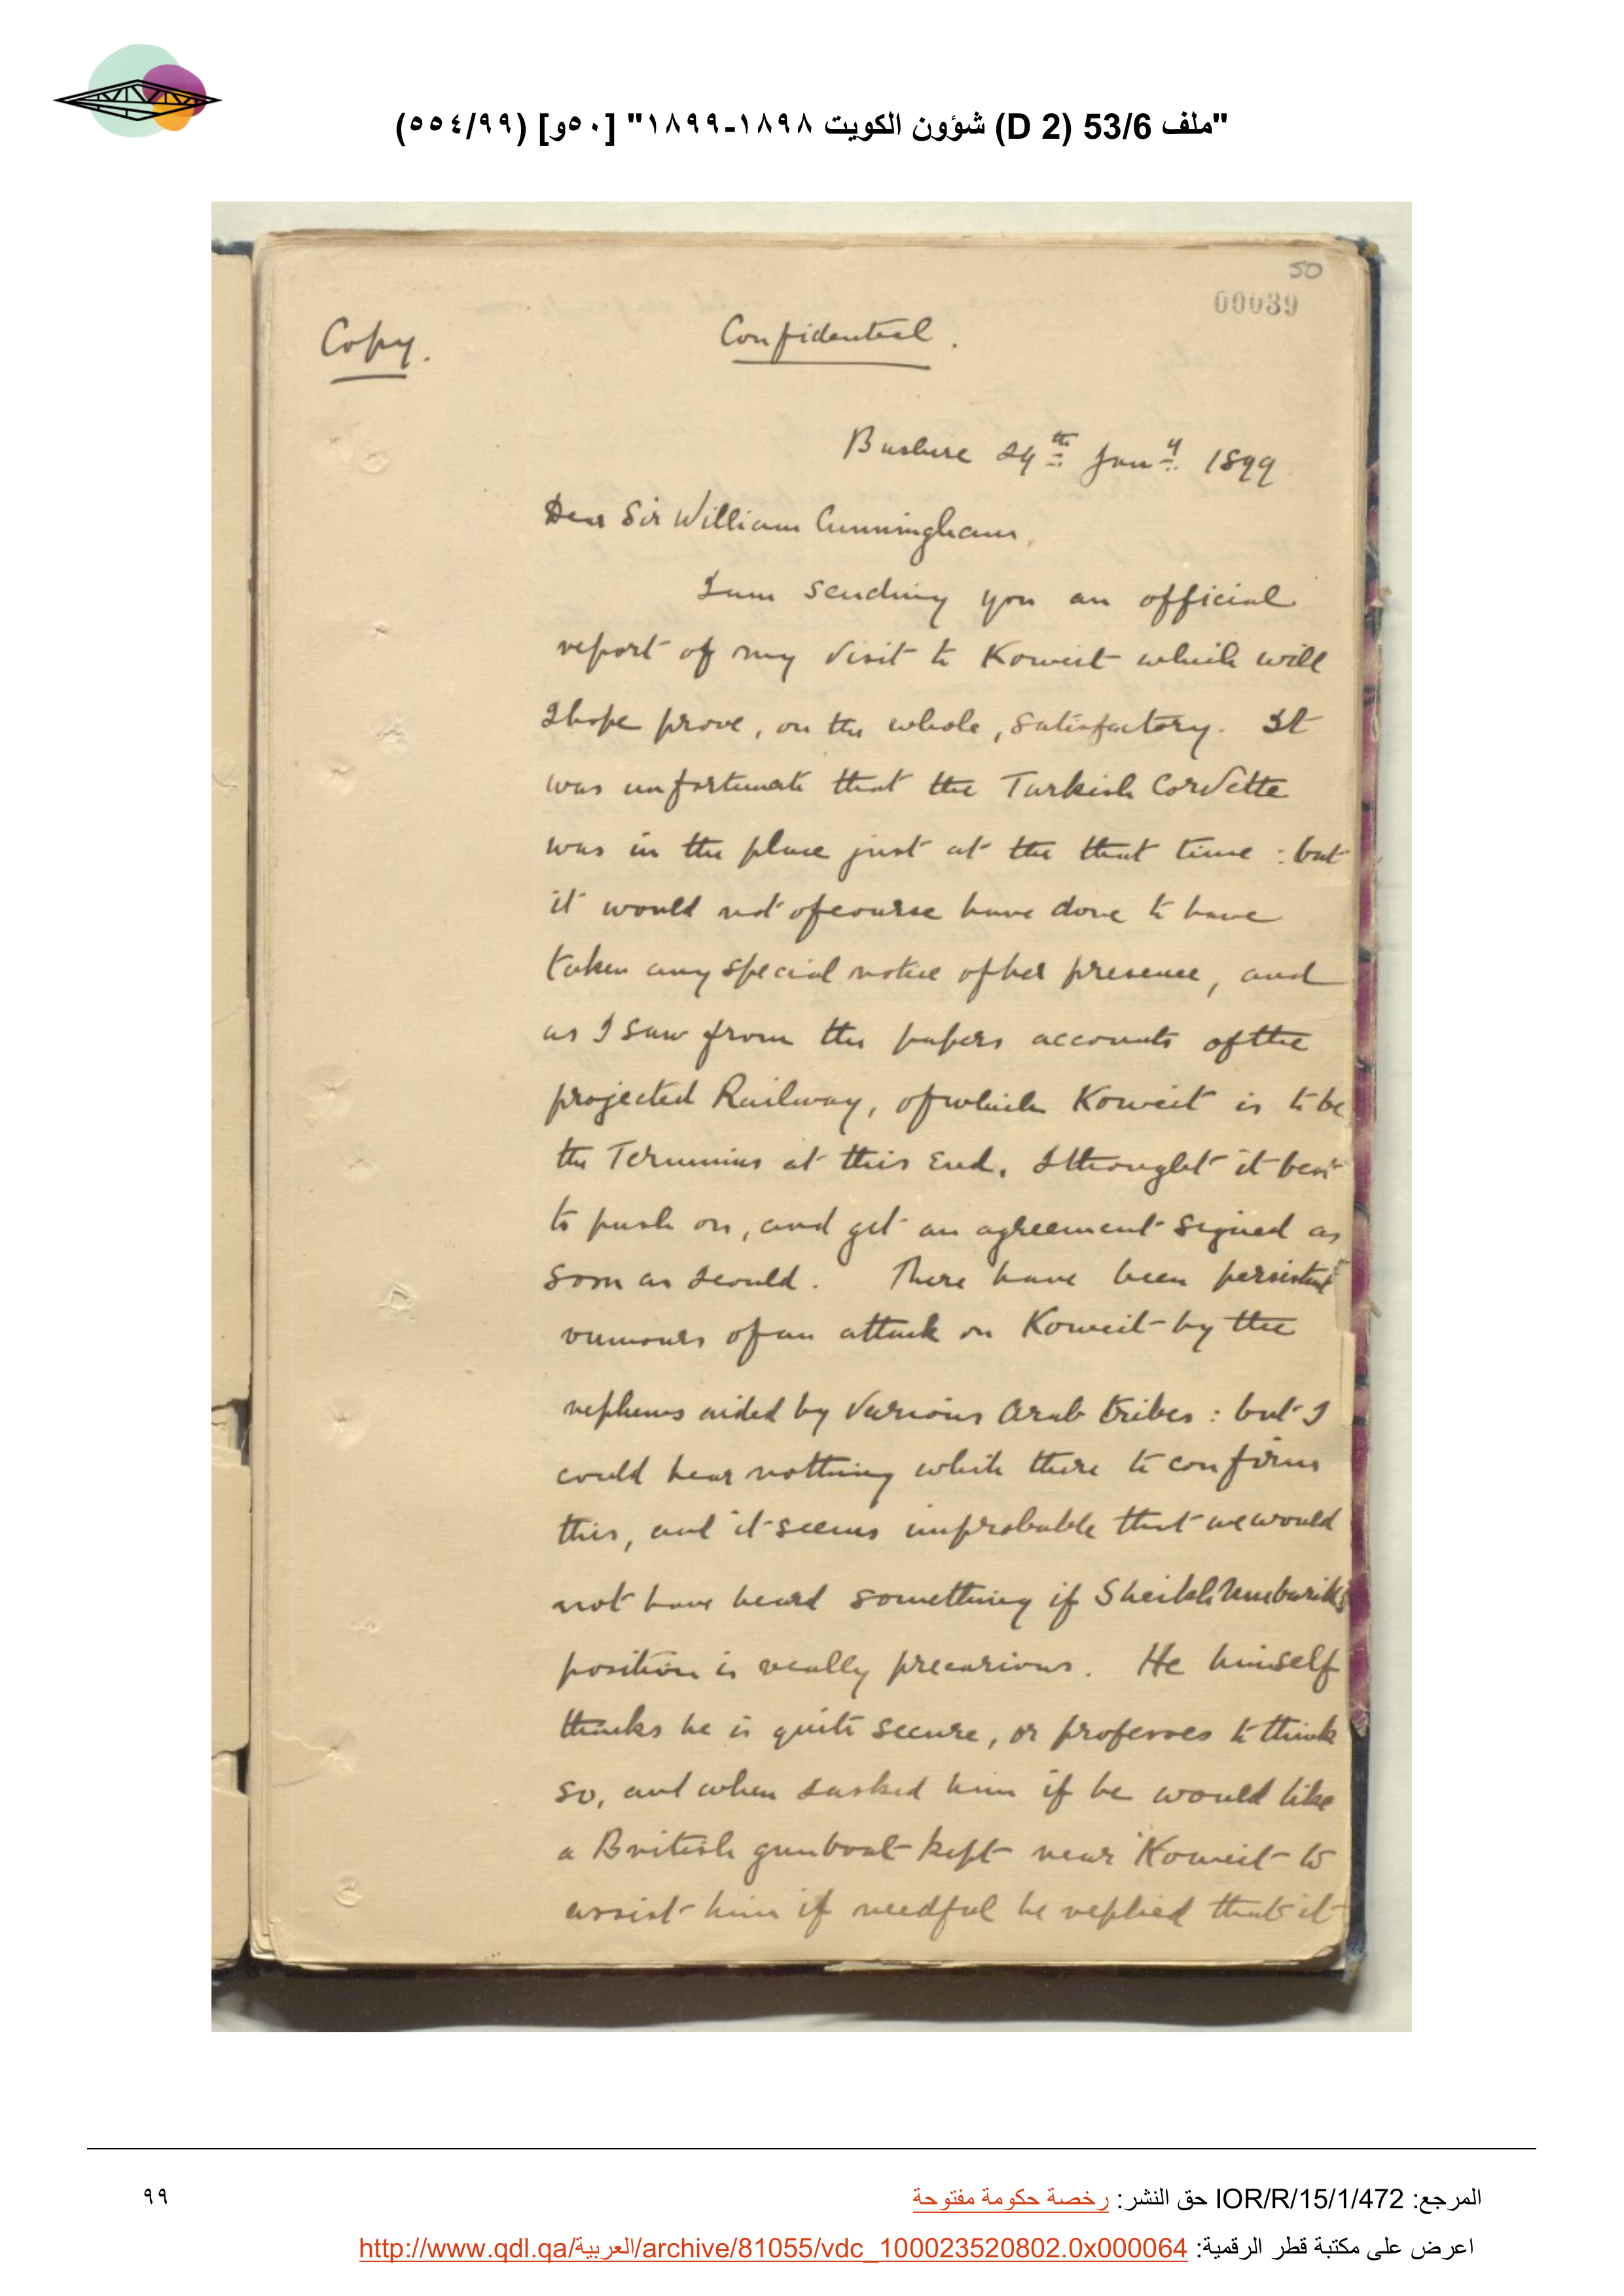 "ملف 53/6 (D 2) شؤون الكويت ١٨٩٨-١٨٩٩" [٥٠و] (٥٥٤/٩٩)
50
00039
Copy.
Confidential.
Bushire 24th Jany. 1899
Dear Sir William Cunningham,
I am sending you an official
report of my visit to Koweit which will
I hope prove, on the whole, satisfactory. It
was unfortunate that the Turkish Corvette
was in the place just at the that time : but
it would not of course have done to have
taken any special notice of her presence, and
as I saw from the papers accounts of the
projected Railway, of which Koweit is to be
the Terminus at this End, I thought it best
to push on, and get an agreement signed as
soon as I could. There have been persistent
rumours of an attack on Koweit by the
nephews aided by various Arab tribes : but I
could hear nothing while there to confirm
this, and it seems improbable that we would
not have heard something if Sheikh Mubarik's
position is really precarious. He himself
thinks he is quite secure, or professes to think
so, and when I asked him if he would like
a British gunboat kept near Koweit to
assist him if needful he replied that it
المرجع: IOR/R/15/1/472 حق النشر: رخصة حكومة مفتوحة
٩٩
اعرض على مكتبة قطر الرقمية: http://www.qdl.qa/العربية/archive/81055/vdc_100023520802.0x000064